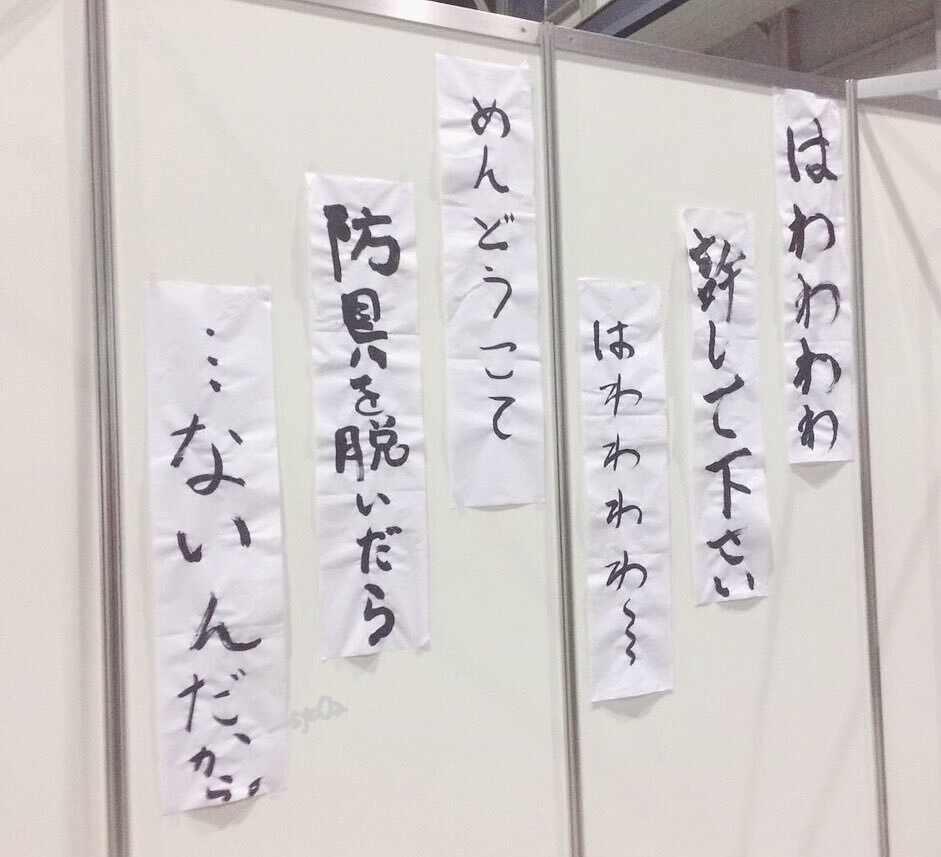 はわわわわ
許して下さい
はわわわわ〜〜
めんどうこて
防具を脱いだら
…ないんだ、から。